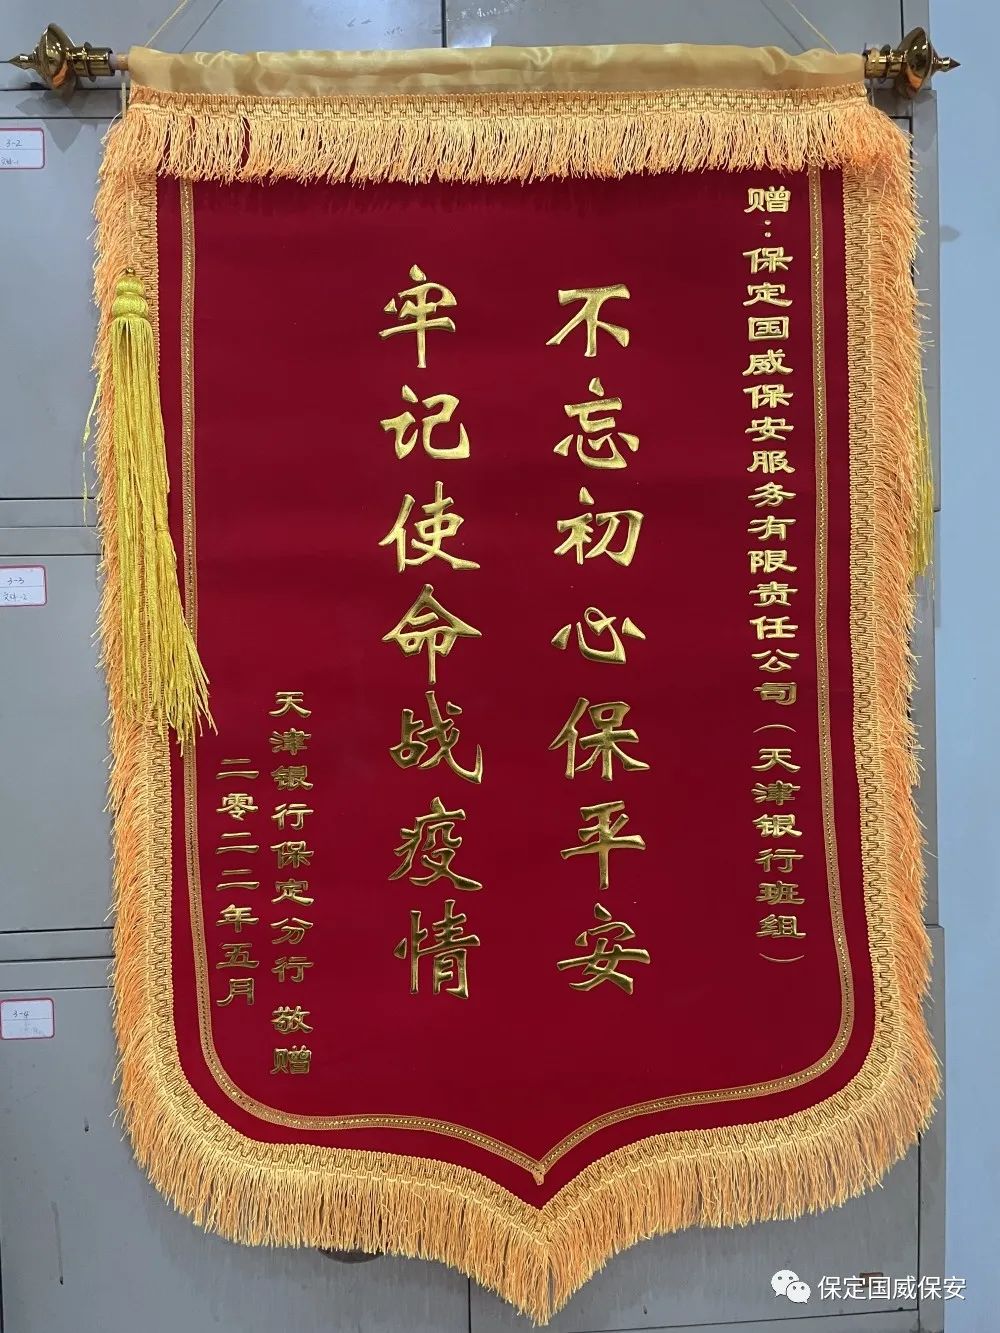 赠：保定国威保安服务有限责任公司（天津银行班组）
不忘初心保平安
牢记使命战疫情
天津银行保定分行 敬赠
二零二二年五月
3-2
3-3
3-4
保定国威保安